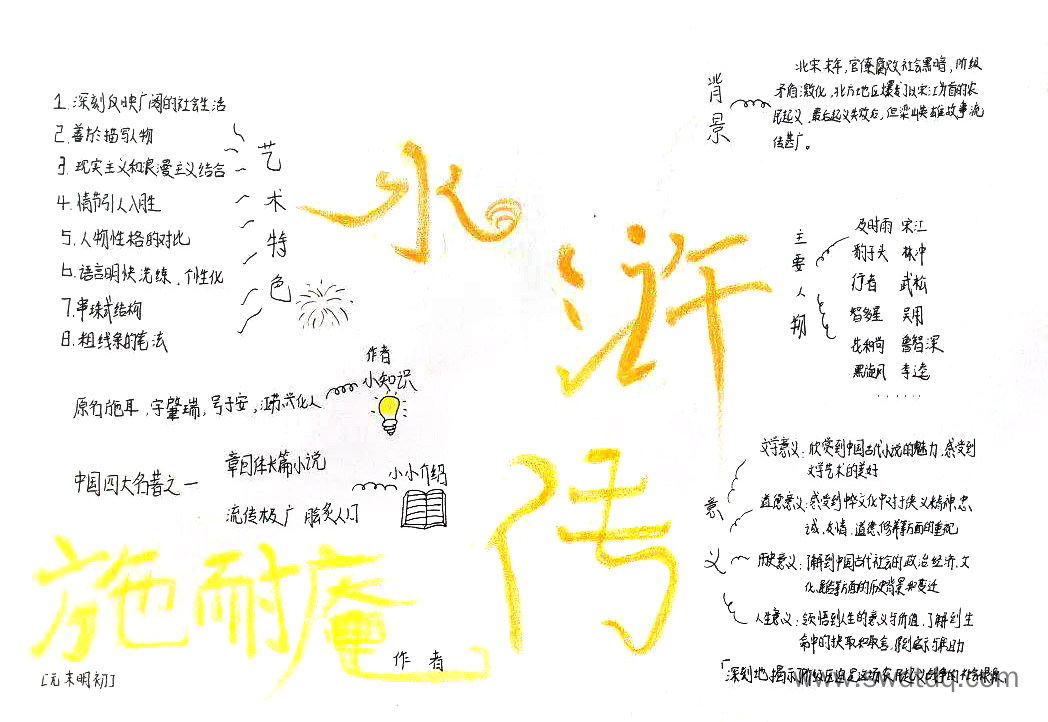 水浒传
施耐庵
作者
[元末明初]
艺术特色
1.深刻反映广阔的社会生活
2.善於描写人物
3.现实主义和浪漫主义结合
4.情节引人入胜
5.人物性格的对比
6.语言明快洗练、个性化
7.串珠式结构
8.粗线条的笔法
作者
小知识
原名施耳,字肇瑞,号子安,江苏兴化人
小小介绍
中国四大名著之一
章回体长篇小说
流传极广 脍炙人口
背景
北宋末年,官僚腐败社会黑暗,阶级
矛盾激化,北方地区爆发了以宋江为首的农
民起义,最后起义失败后,但梁山英雄故事流
传甚广。
主要人物
及时雨 宋江
豹子头 林冲
行者 武松
智多星 吴用
花和尚 鲁智深
黑旋风 李逵
······
意义
文学意义:欣赏到中国古代小说的魅力,感受到
文学艺术的美好
道德意义:感受到 文化中对于侠义精神,忠
诚,友情,道德修养等方面的重视
历史意义:了解到中国古代社会的政治经济、文
化 等方面的历史背景和变迁
人生意义:领悟到人生的意义与价值,了解到生
命中的 取和取舍,得到启示与帮助
「深刻地揭示
www.swdtdq.com